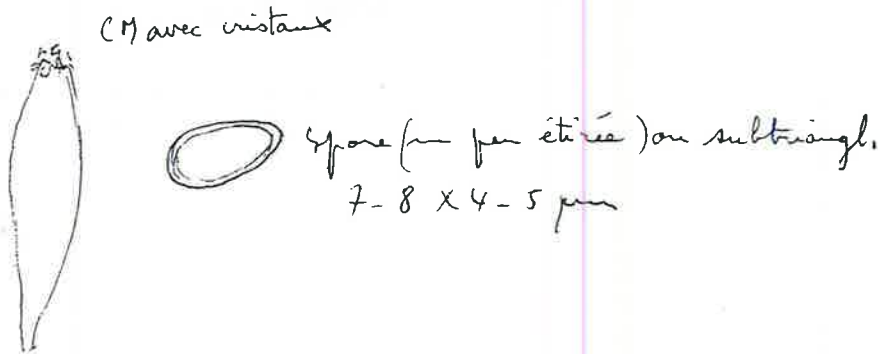 CM avec cristaux
Spore (un peu étirée) ou subtriangl.
7-8 X 4-5 µm